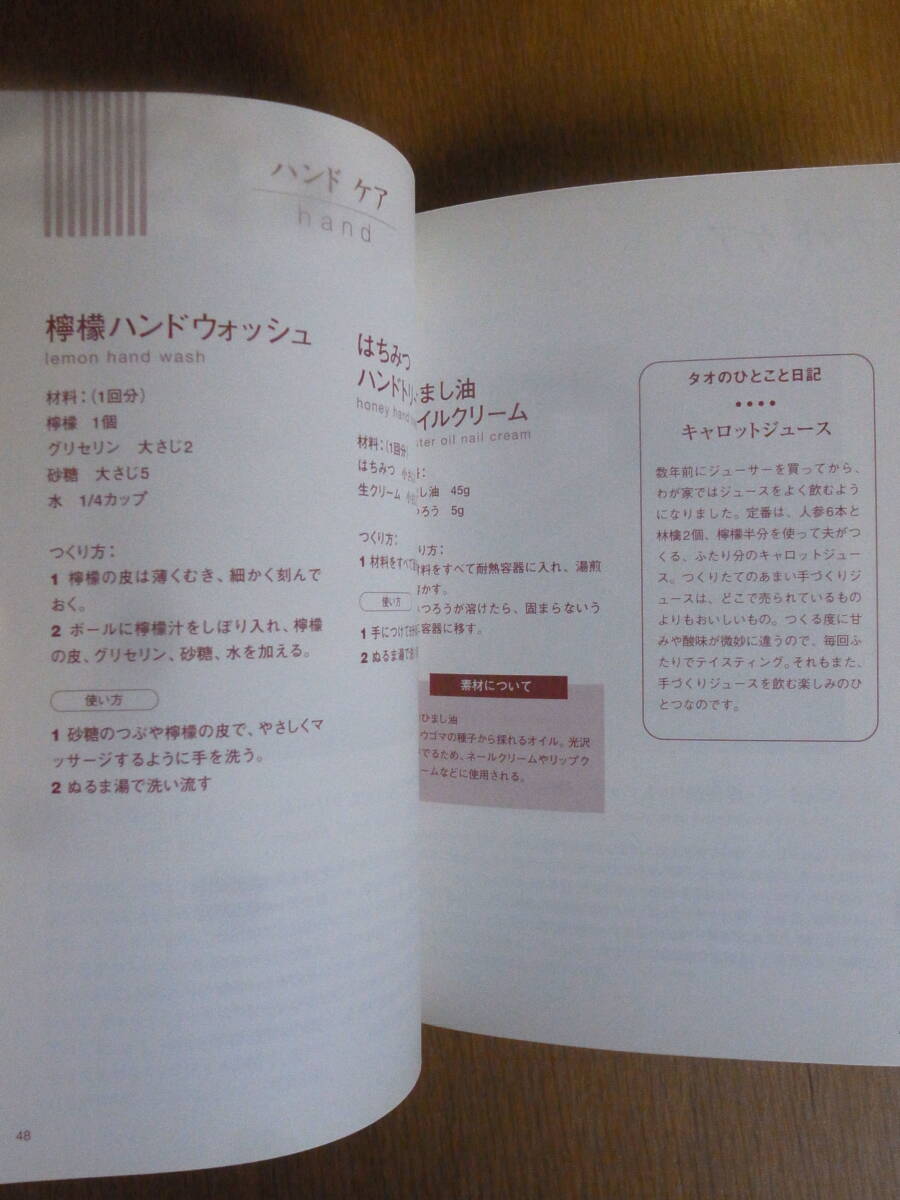 ハンド ケア
hand
檸檬ハンドウォッシュ
lemon hand wash
材料：（1回分）
檸檬　1個
グリセリン　大さじ2
砂糖　大さじ5
水　1/4カップ
つくり方：
1 檸檬の皮は薄くむき、細かく刻んで
おく。
2 ボールに檸檬汁をしぼり入れ、檸檬
の皮、グリセリン、砂糖、水を加える。
使い方
1 砂糖のつぶや檸檬の皮で、やさしくマ
ッサージするように手を洗う。
2 ぬるま湯で洗い流す
48
はちみつ
ハンドトリ
honey hand
材料：（1回分）
はちみつ　小
生クリーム　小
つくり方：
1 材料をすべて
使い方
1 手につけて
2 ぬるま湯で
まし油
イルクリーム
ter oil nail cream
し油　45g
ろう　5g
り方：
材料をすべて耐熱容器に入れ、湯煎
かす。
つろうが溶けたら、固まらないう
容器に移す。
素材について
ひまし油
ウゴマの種子から採れるオイル。光沢
でるため、ネールクリームやリップク
ームなどに使用される。
タオのひとこと日記
••••
キャロットジュース
数年前にジューサーを買ってから、
わが家ではジュースをよく飲むよう
になりました。定番は、人参6本と
林檎2個、檸檬半分を使って夫がつ
くる、ふたり分のキャロットジュー
ス。つくりたてのあまい手づくりジ
ュースは、どこで売られているもの
よりもおいしいもの。つくる度に甘
みや酸味が微妙に違うので、毎回ふ
たりでテイスティング。それもまた、
手づくりジュースを飲む楽しみのひ
とつなのです。